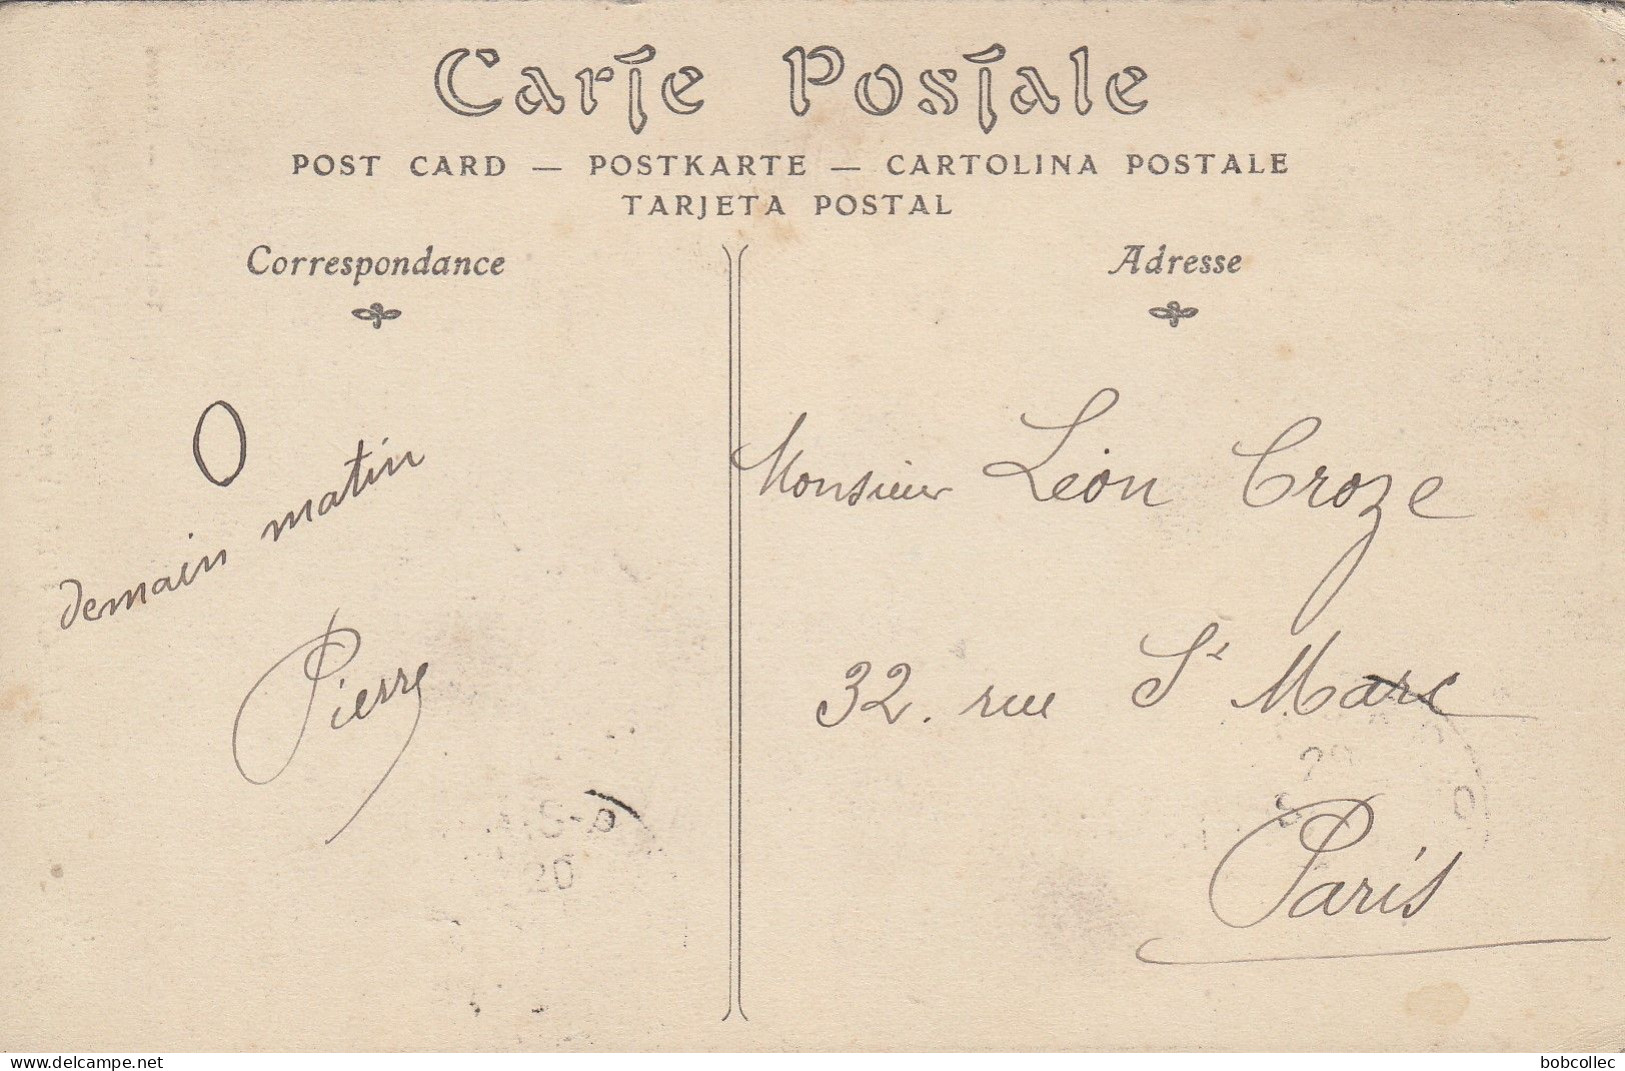 Carte Postale
POST CARD — POSTKARTE — CARTOLINA POSTALE
TARJETA POSTAL
Correspondance
Adresse
O
demain matin
Pierre
Monsieur Léon Croze
32. rue St Marc
Paris
20
delcampe.net
bobcollec